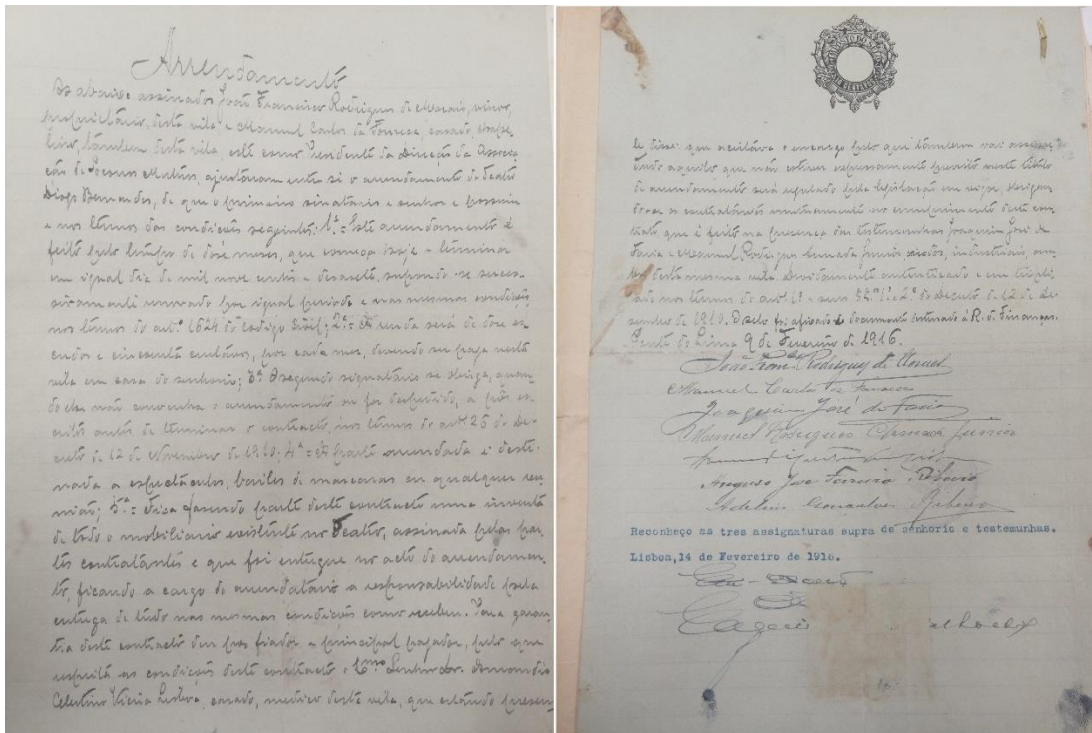 Arrendamento
Os abaixo assinados João Francisco Rodrigues de Morais, viuvo,
proprietario, desta vila e Manuel Carlos da Fonseca, casado,
tambem desta vila, este como Presidente da Direção da Associa-
ção de Socorros Mutuos, ajustaram entre si o arrendamento do Teatro
Diogo Bernardes, de que o primeiro sinatario e senhor e possuie
e nos termos das condições seguintes: 1ª Este arrendamento é
feito pelo tempo de dose meses, que começa hoje e termina
em igual dia de mil nove centos e desasete, supondo-se suces-
sivamente renovado por igual periodo e nas mesmas condições,
nos termos do artº 1624 do codigo Civil; 2ª = A renda será de dose es-
cudos e cincoenta centavos, por cada mes, devendo ser paga nesta
vila em casa do senhorio; 3ª O segundo signatário se obriga, quan-
do lhe não convenha o arrendamento ou for despedido, a pôr es-
critos antes de terminar o contracto, nos termos do artº 25 do De-
creto de 12 de Novembro de 1910; 4ª = A parte arrendada é desti-
nada a espectáculos, bailes de mascaras ou qualquer reu-
nião; 5ª = Fica fasendo parte deste contracto um inventa
de todo o mobiliario existente no Teatro, assinada pelas par-
tes contratantes e que foi entregue no acto do arrendamen-
to, ficando a cargo do arrendatário a responsabilidade pela
entrega de tudo nas mesmas condições como recebeu. Para garan-
tia deste contracto deu por fiador e principal pagador, pelo que
respeita as condições deste contracto o Exmo Senhor Dr.
Celestino Vieira Lisboa, casado, medico desta vila, que estando presen
te disse que aceitava o encargo pelo que tambem vai assinar
Tudo aquilo que não estiver expressamente previsto neste titulo
de arrendamento será regulado pela legislação em vigor, obrigan-
do-se os contratantes mutuamente no cumprimento deste con-
trato, que é feito na presença das testemunhas Joaquim José de
Faria e Manuel Rodrigues Armada Junior casados, industriais, am-
bos desta mesma vila devidamente autenticado e em tripli-
cado nos termos do artº 1º e seus §§ 1º e 2º do decreto de 12 de
de 1910. O selo foi afixado no documento destinado á R. de Finanças.
Ponte do Lima 9 de Fevereiro de 1916.
João Franco Rodrigues de Morais
Manuel Carlos da Fonseca
Joaquim José de Faria
Manuel Rodrigues Armada Junior
Augusto José Ferreira Ribeiro
Adelino Gonçalves Ribeiro
Reconheço as tres assignaturas supra de senhorio e testemunhas.
Lisboa,14 de Fevereiro de 1916.